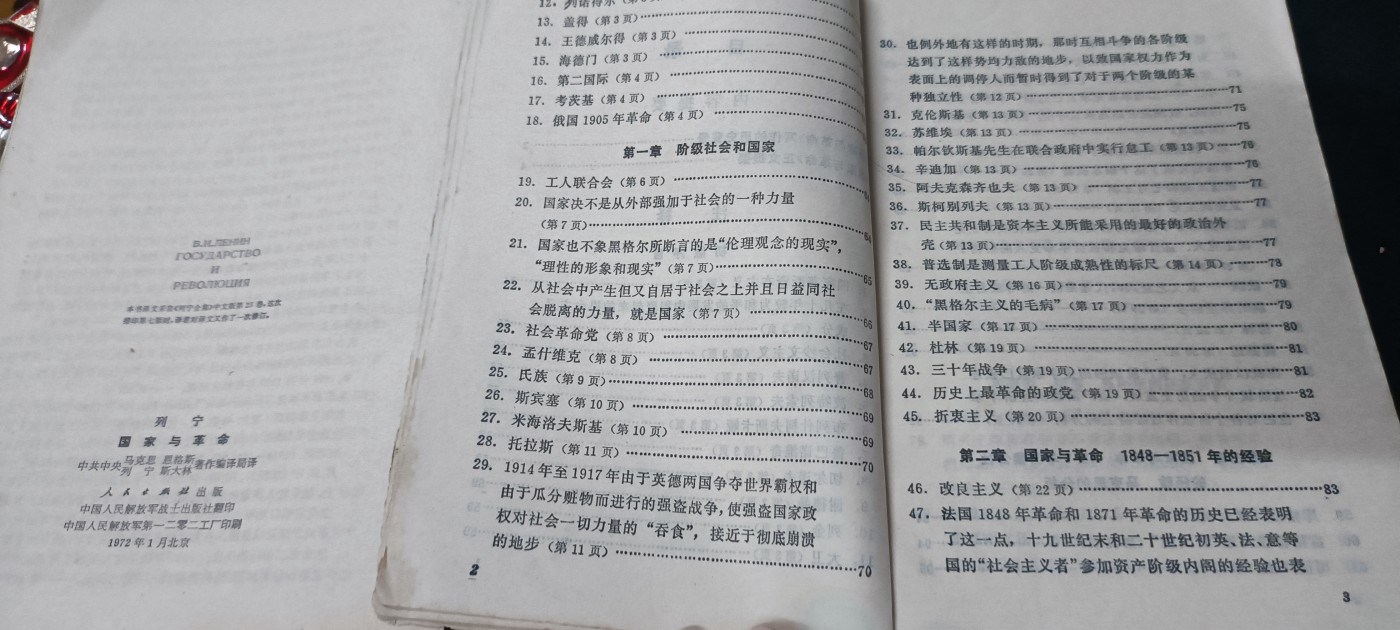 В.И.ЛЕНИН
ГОСУДАРСТВО
И
РЕВОЛЮЦИЯ
列 宁
国 家 与 革 命
中共中央马克思 恩格斯
列 宁 斯大林著作编译局译
人 民 出 版 社 出版
中国人民解放军战士出版社翻印
中国人民解放军第一二零二工厂印刷
1972年1月北京
12. 列诺得尔
13. 盖得（第3页）
14. 王德威尔得（第3页）
15. 海德门（第3页）
16. 第二国际（第4页）
17. 考茨基（第4页）
18. 俄国1905年革命（第4页）
第一章 阶级社会和国家
19. 工人联合会（第6页）
20. 国家决不是从外部强加于社会的一种力量
（第7页）
21. 国家也不象黑格尔所断言的是“伦理观念的现实”，
“理性的形象和现实”（第7页）65
22. 从社会中产生但又自居于社会之上并且日益同社
会脱离的力量，就是国家（第7页）66
23. 社会革命党（第8页）67
24. 孟什维克（第8页）67
25. 氏族（第9页）68
26. 斯宾塞（第10页）69
27. 米海洛夫斯基（第10页）69
28. 托拉斯（第11页）70
29. 1914年至1917年由于英德两国争夺世界霸权和
由于瓜分赃物而进行的强盗战争，使强盗国家政
权对社会一切力量的“吞食”，接近于彻底崩溃
的地步（第11页）70
2
30. 也例外地有这样的时期，那时互相斗争的各阶级
达到了这样势均力敌的地步，以致国家权力作为
表面上的调停人而暂时得到了对于两个阶级的某
种独立性（第12页）71
31. 克伦斯基（第13页）75
32. 苏维埃（第13页）75
33. 帕尔钦斯基先生在联合政府中实行怠工（第13页）76
34. 辛迪加（第13页）76
35. 阿夫克森齐也夫（第13页）77
36. 斯柯别列夫（第13页）77
37. 民主共和制是资本主义所能采用的最好的政治外
壳（第13页）77
38. 普选制是测量工人阶级成熟性的标尺（第14页）78
39. 无政府主义（第16页）79
40. “黑格尔主义的毛病”（第17页）79
41. 半国家（第17页）80
42. 杜林（第19页）81
43. 三十年战争（第19页）81
44. 历史上最革命的政党（第19页）82
45. 折衷主义（第20页）83
第二章 国家与革命 1848—1851年的经验
46. 改良主义（第22页）83
47. 法国1848年革命和1871年革命的历史已经表明
了这一点，十九世纪末和二十世纪初英、法、意等
国的“社会主义者”参加资产阶级内阁的经验也表
3